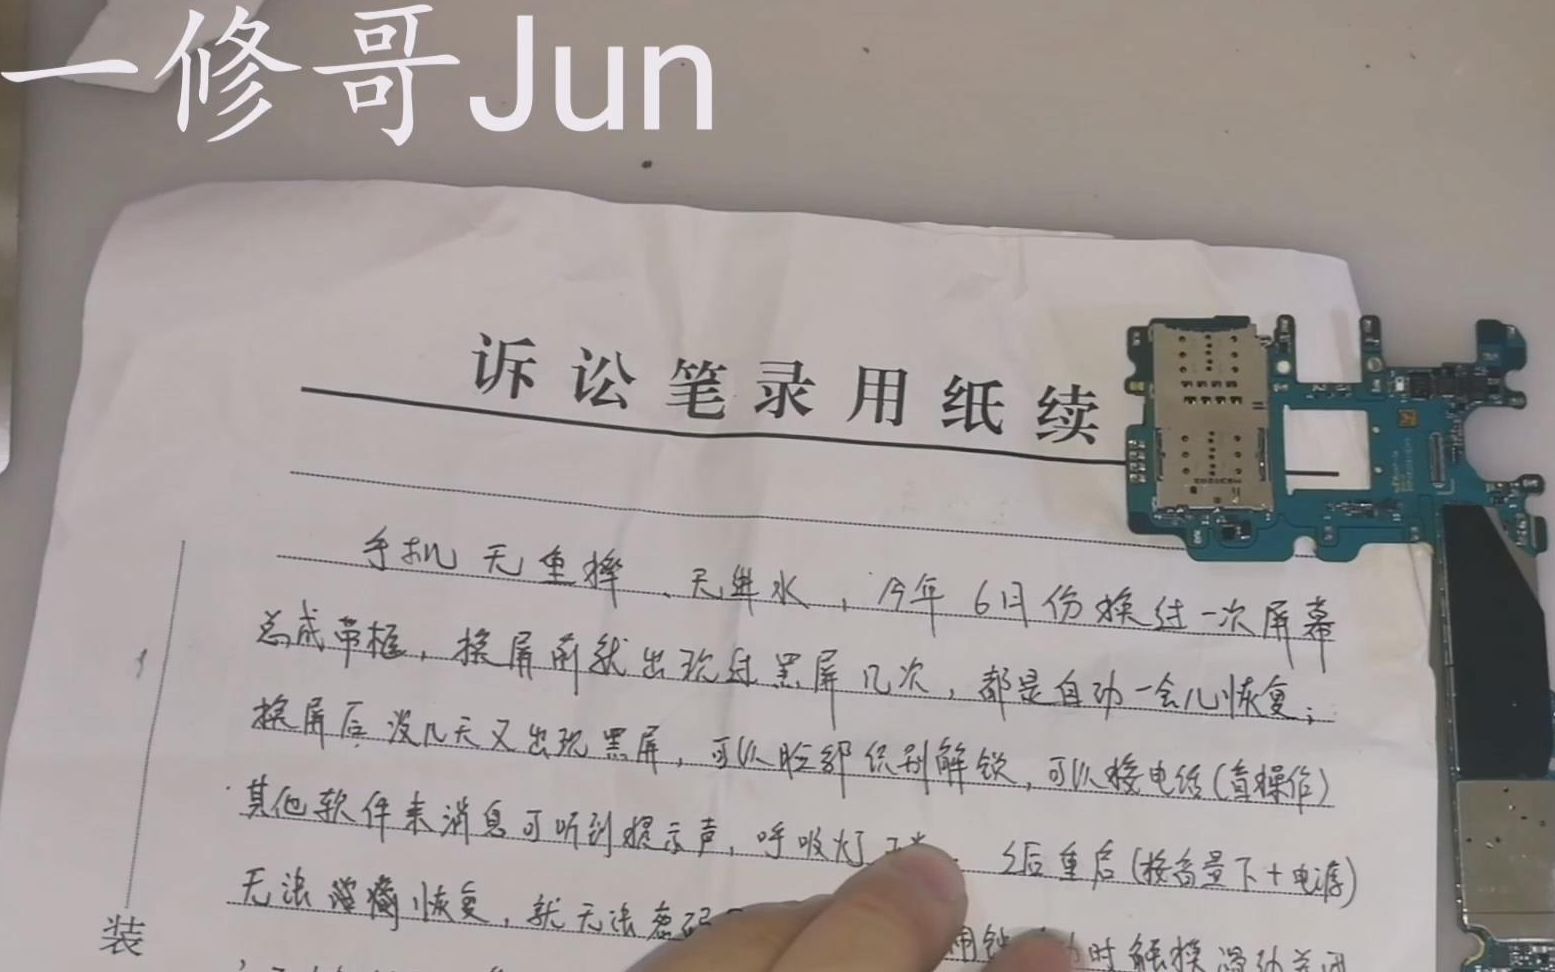 一修哥Jun
诉讼笔录用纸续
手机无重摔、无进水，今年6月份换过一次屏幕
总成带框，换屏前就出现过黑屏几次，都是自动一会儿恢复；
换屏后没几天又出现黑屏，可以脸部识别解锁，可以接电话(盲操作)
其他软件来消息可听到提示声，呼吸灯 后重启(按音量下+电源)
无法 恢复，就无法密码 时触摸滑动关闭
装